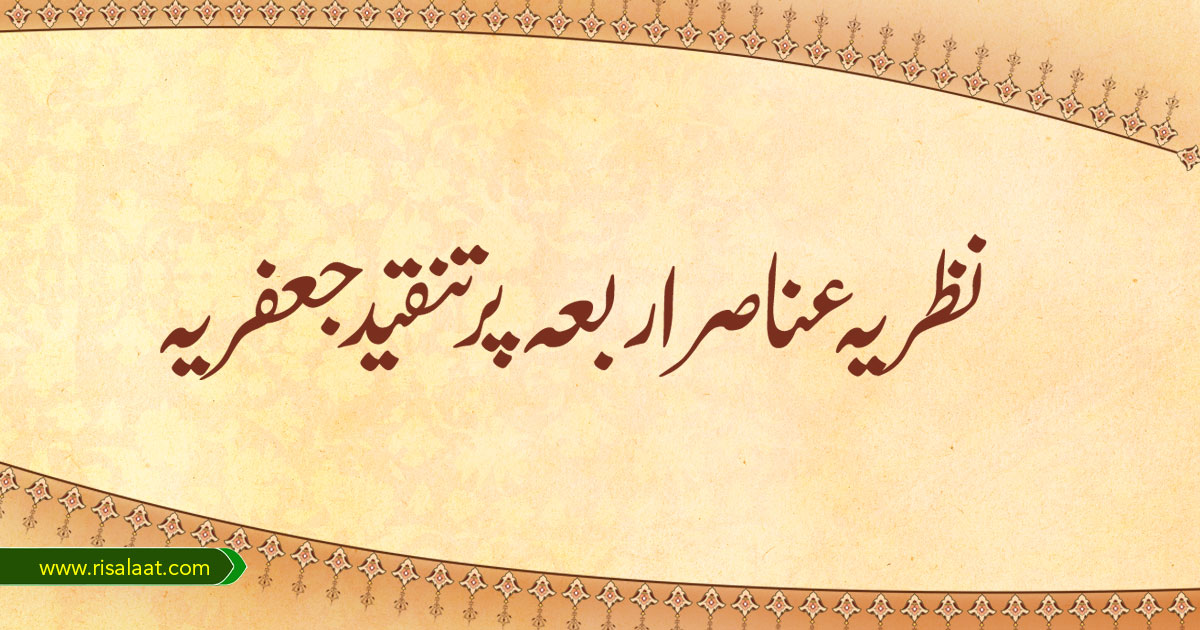 نظریہ عناصر اربعہ پر تنقید جعفریہ
www.risalaat.com